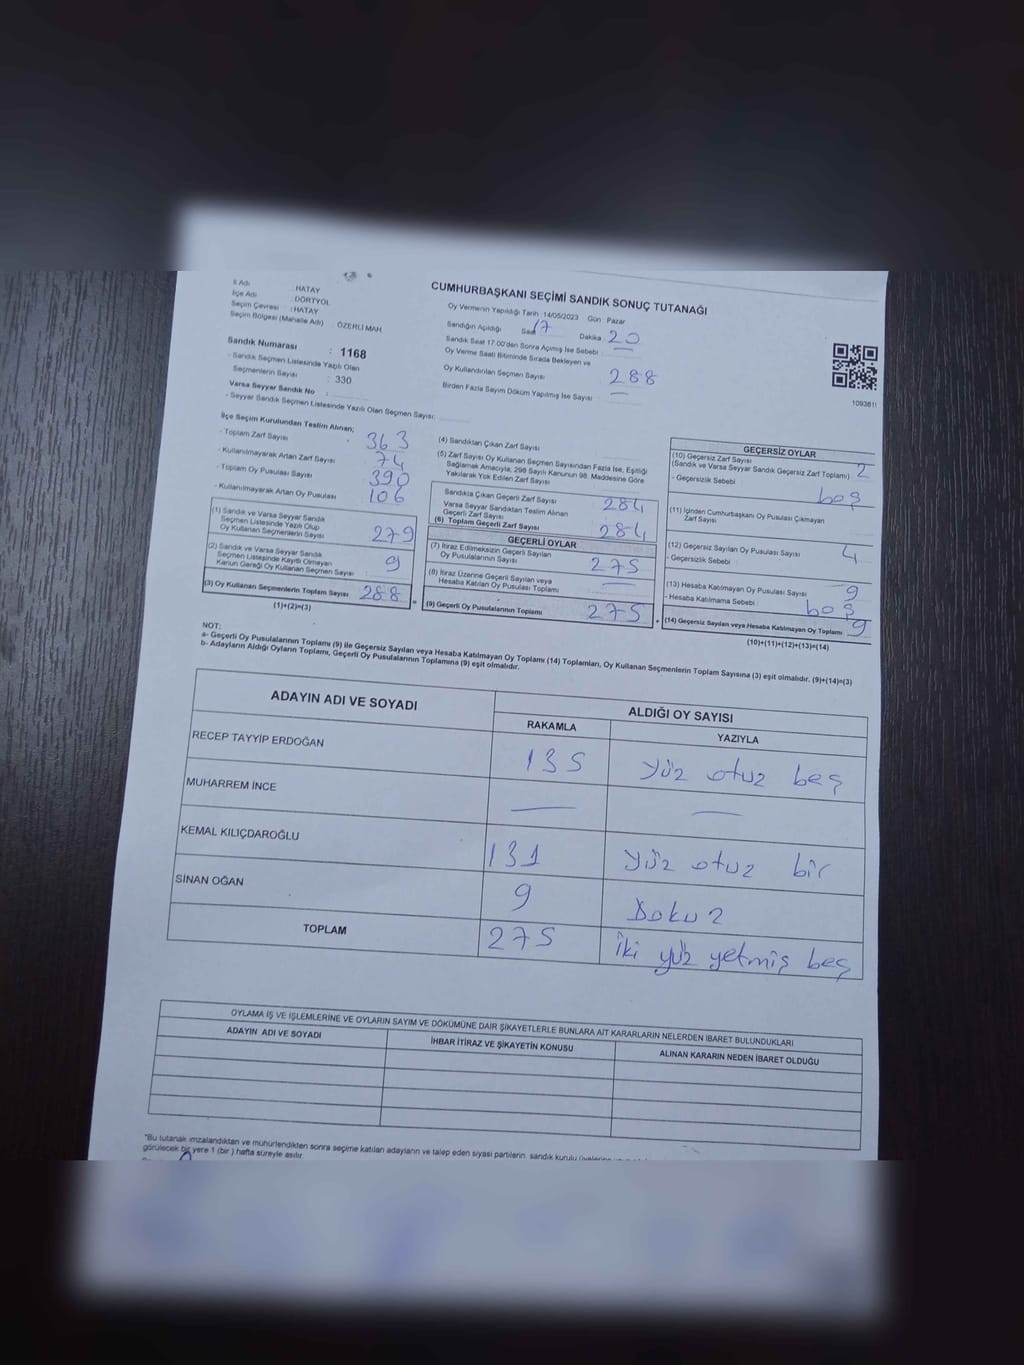 İl Adı : HATAY
İlçe Adı : DÖRTYOL
Seçim Çevresi : HATAY
Seçim Bölgesi (Mahalle Adı) ÖZERLİ MAH
CUMHURBAŞKANI SEÇİMİ SANDIK SONUÇ TUTANAĞI
Oy Vermenin Yapıldığı Tarih : 14/05/2023 Gün : Pazar
Sandığın Açıldığı Saat 17 Dakika : 20
Sandık Saat 17:00'den Sonra Açılmış İse Sebebi : —
Oy Verme Saati Bitiminde Sırada Bekleyen ve
Oy Kullandırılan Seçmen Sayısı 288
Birden Fazla Sayım Döküm Yapılmış İse Sayısı —
Sandık Numarası : 1168
- Sandık Seçmen Listesinde Yazılı Olan
Seçmenlerin Sayısı : 330
Varsa Seyyar Sandık No :
- Seyyar Sandık Seçmen Listesinde Yazılı Olan Seçmen Sayısı:
İlçe Seçim Kurulundan Teslim Alınan;
- Toplam Zarf Sayısı 363
- Kullanılmayarak Artan Zarf Sayısı 74
- Toplam Oy Pusulası Sayısı 390
- Kullanılmayarak Artan Oy Pusulası 106
(1) Sandık ve Varsa Seyyar Sandık
Seçmen Listesinde Yazılı Olup
Oy Kullanan Seçmenlerin Sayısı 279
(2) Sandık ve Varsa Seyyar Sandık
Seçmen Listesinde Kayıtlı Olmayan
Kanun Gereği Oy Kullanan Seçmen Sayısı 9
(3) Oy Kullanan Seçmenlerin Toplam Sayısı 288
(1)+(2)=(3)
(4) Sandıktan Çıkan Zarf Sayısı
(5) Zarf Sayısı Oy Kullanan Seçmen Sayısından Fazla İse, Eşitliği
Sağlamak Amacıyla, 298 Sayılı Kanunun 98. Maddesine Göre
Yakılarak Yok Edilen Zarf Sayısı
Sandıkta Çıkan Geçerli Zarf Sayısı 284
Varsa Seyyar Sandıktan Teslim Alınan
Geçerli Zarf Sayısı
(6) Toplam Geçerli Zarf Sayısı 284
GEÇERLİ OYLAR
(7) İtiraz Edilmeksizin Geçerli Sayılan
Oy Pusulalarının Sayısı 275
(8) İtiraz Üzerine Geçerli Sayılan veya
Hesaba Katılan Oy Pusulası Toplamı —
(9) Geçerli Oy Pusulalarının Toplamı 275
GEÇERSİZ OYLAR
(10) Geçersiz Zarf Sayısı
(Sandık ve Varsa Seyyar Sandık Geçersiz Zarf Toplamı) 2
- Geçersizlik Sebebi boş
(11) İçinden Cumhurbaşkanı Oy Pusulası Çıkmayan
Zarf Sayısı
(12) Geçersiz Sayılan Oy Pusulası Sayısı 4
- Geçersizlik Sebebi :
(13) Hesaba Katılmayan Oy Pusulası Sayısı 9
- Hesaba Katılmama Sebebi : boş
(14) Geçersiz Sayılan veya Hesaba Katılmayan Oy Toplamı 9
(10)+(11)+(12)+(13)=(14)
NOT:
a- Geçerli Oy Pusulalarının Toplamı (9) ile Geçersiz Sayılan veya Hesaba Katılmayan Oy Toplamı (14) Toplamları, Oy Kullanan Seçmenlerin Toplam Sayısına (3) eşit olmalıdır. (9)+(14)=(3)
b- Adayların Aldığı Oyların Toplamı, Geçerli Oy Pusulalarının Toplamına (9) eşit olmalıdır.
ADAYIN ADI VE SOYADI ALDIĞI OY SAYISI
RAKAMLA YAZIYLA
RECEP TAYYİP ERDOĞAN 135 yüz otuz beş
MUHARREM İNCE — —
KEMAL KILIÇDAROĞLU 131 yüz otuz bir
SİNAN OĞAN 9 Dokuz
TOPLAM 275 iki yüz yetmiş beş
OYLAMA İŞ VE İŞLEMLERİNE VE OYLARIN SAYIM VE DÖKÜMÜNE DAİR ŞİKAYETLERLE BUNLARA AİT KARARLARIN NELERDEN İBARET BULUNDUKLARI
ADAYIN ADI VE SOYADI İHBAR İTİRAZ VE ŞİKAYETİN KONUSU ALINAN KARARIN NEDEN İBARET OLDUĞU
*Bu tutanak imzalandıktan ve mühürlendikten sonra seçime katılan adayların ve talep eden siyasi partilerin sandık kurulu
görülecek bir yere 1 (bir) hafta süreyle asılır.